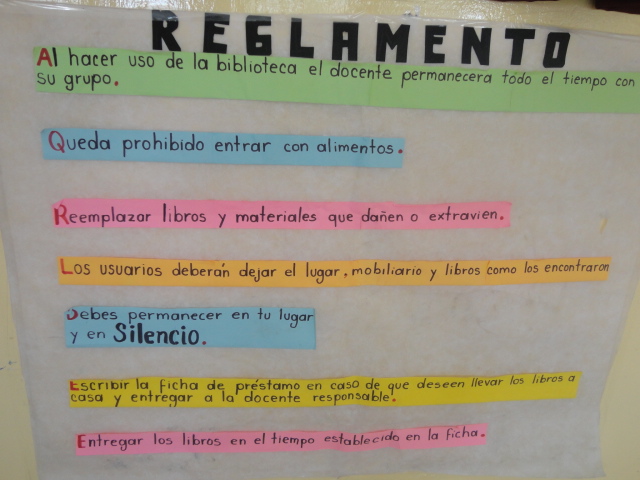 REGLAMENTO
Al hacer uso de la biblioteca el docente permanecera todo el tiempo con
su grupo.
Queda prohibido entrar con alimentos.
Reemplazar libros y materiales que dañen o extravien.
Los usuarios deberán dejar el lugar, mobiliario y libros como los encontraron
Debes permanecer en tu lugar
y en Silencio.
Escribir la ficha de préstamo en caso de que deseen llevar los libros a
casa y entregar a la docente responsable.
Entregar los libros en el tiempo establecido en la ficha.